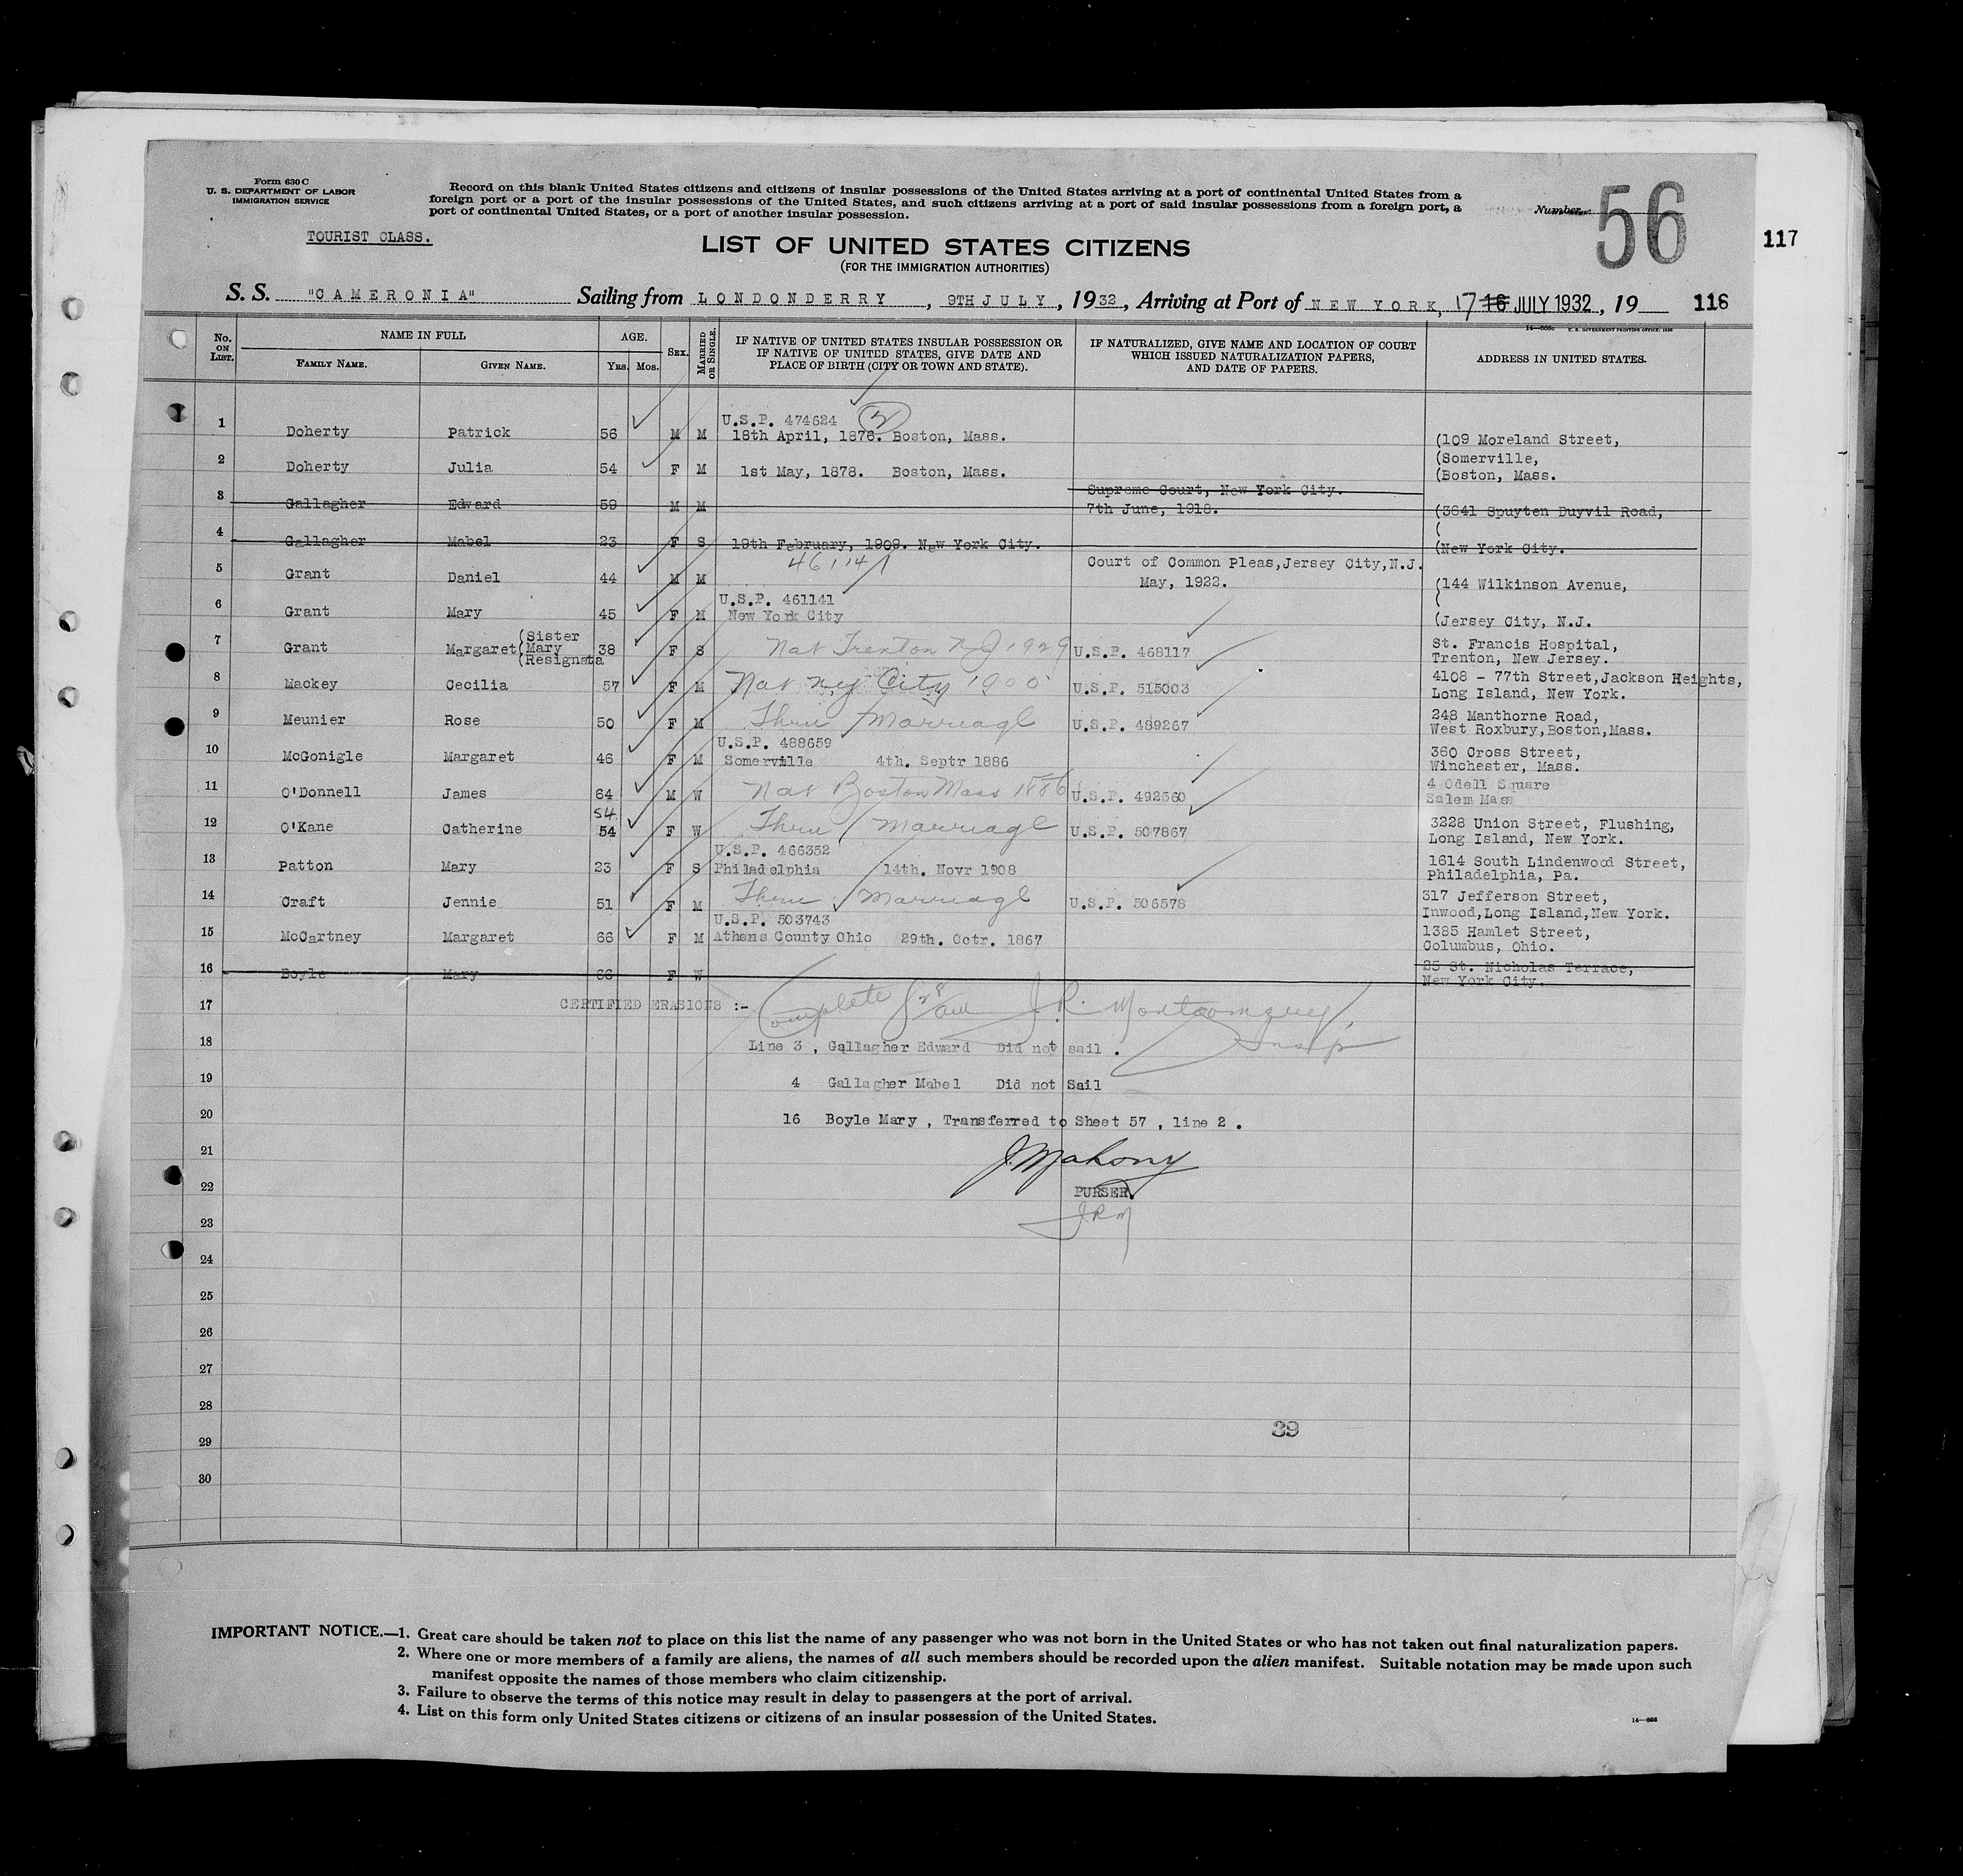 Form 630 C
U. S. DEPARTMENT OF LABOR
IMMIGRATION SERVICE
Record on this blank United States citizens and citizens of insular possessions of the United States arriving at a port of continental United States from a
foreign port or a port of the insular possessions of the United States, and such citizens arriving at a port of said insular possessions from a foreign port, a
port of continental United States, or a port of another insular possession.
Number 56
117
TOURIST CLASS.
LIST OF UNITED STATES CITIZENS
(FOR THE IMMIGRATION AUTHORITIES)
S. S. "CAMERONIA" Sailing from LONDONDERRY, 9TH JULY, 1932, Arriving at Port of NEW YORK, 17 16 JULY 1932, 19
116
14—608c U. S. GOVERNMENT PRINTING OFFICE: 1930
No. ON LIST. NAME IN FULL AGE. SEX. MARRIED OR SINGLE. IF NATIVE OF UNITED STATES INSULAR POSSESSION OR IF NATIVE OF UNITED STATES, GIVE DATE AND PLACE OF BIRTH (CITY OR TOWN AND STATE). IF NATURALIZED, GIVE NAME AND LOCATION OF COURT WHICH ISSUED NATURALIZATION PAPERS, AND DATE OF PAPERS. ADDRESS IN UNITED STATES.
FAMILY NAME. GIVEN NAME. Yrs. Mos.
U.S.P. 474624
1 Doherty Patrick 56 M M 18th April, 1876. Boston, Mass. (109 Moreland Street,
(Somerville,
2 Doherty Julia 54 F M 1st May, 1878. Boston, Mass. (Boston, Mass.
Supreme Court, New York City.
3 Gallagher Edward 59 M M 7th June, 1918. (3641 Spuyten Duyvil Road,
(
4 Gallagher Mabel 23 F S 19th February, 1909. New York City. (New York City.
461141 Court of Common Pleas, Jersey City, N.J.
5 Grant Daniel 44 M M May, 1922. (144 Wilkinson Avenue,
U.S.P. 461141 (
6 Grant Mary 45 F M New York City (Jersey City, N.J.
7 Grant Margaret (Sister (Mary (Resignata 38 F S Nat Trenton NJ 1929 U.S.P. 468117 St. Francis Hospital,
Trenton, New Jersey.
8 Mackey Cecilia 57 F M Nat NY City 1900 U.S.P. 515003 4108 - 77th Street, Jackson Heights,
Long Island, New York.
9 Meunier Rose 50 F M Thru Marriage U.S.P. 489267 248 Manthorne Road,
West Roxbury, Boston, Mass.
U.S.P. 488659
10 McGonigle Margaret 46 F M Somerville 4th. Septr 1886 360 Cross Street,
Winchester, Mass.
11 O'Donnell James 64 M W Nat Boston Mass 1886 U.S.P. 492560 4 Odell Square
Salem Mass
54
12 O'Kane Catherine 54 F W Thru Marriage U.S.P. 507867 3228 Union Street, Flushing,
Long Island, New York.
U.S.P. 466352
13 Patton Mary 23 F S Philadelphia 14th. Novr 1908 1614 South Lindenwood Street,
Philadelphia, Pa.
14 Craft Jennie 51 F M Thru Marriage U.S.P. 506578 317 Jefferson Street,
Inwood, Long Island, New York.
U.S.P. 503743
15 McCartney Margaret 66 F M Athens County Ohio 29th. Octr. 1867 1385 Hamlet Street,
Columbus, Ohio.
16 Boyle Mary 66 F W 25 St. Nicholas Terrace,
New York City.
17 CERTIFIED ERASIONS :- Complete J.R. Montgomery
Insp
18 Line 3 , Gallagher Edward Did not sail .
19 4 Gallagher Mabel Did not Sail
20 16 Boyle Mary , Transferred to Sheet 57 , line 2 .
21 J. Mahony
22 PURSER.
23 JRM
24
25
26
27
28
39
29
30
IMPORTANT NOTICE.—1. Great care should be taken not to place on this list the name of any passenger who was not born in the United States or who has not taken out final naturalization papers.
2. Where one or more members of a family are aliens, the names of all such members should be recorded upon the alien manifest. Suitable notation may be made upon such
manifest opposite the names of those members who claim citizenship.
3. Failure to observe the terms of this notice may result in delay to passengers at the port of arrival.
4. List on this form only United States citizens or citizens of an insular possession of the United States.
14—608